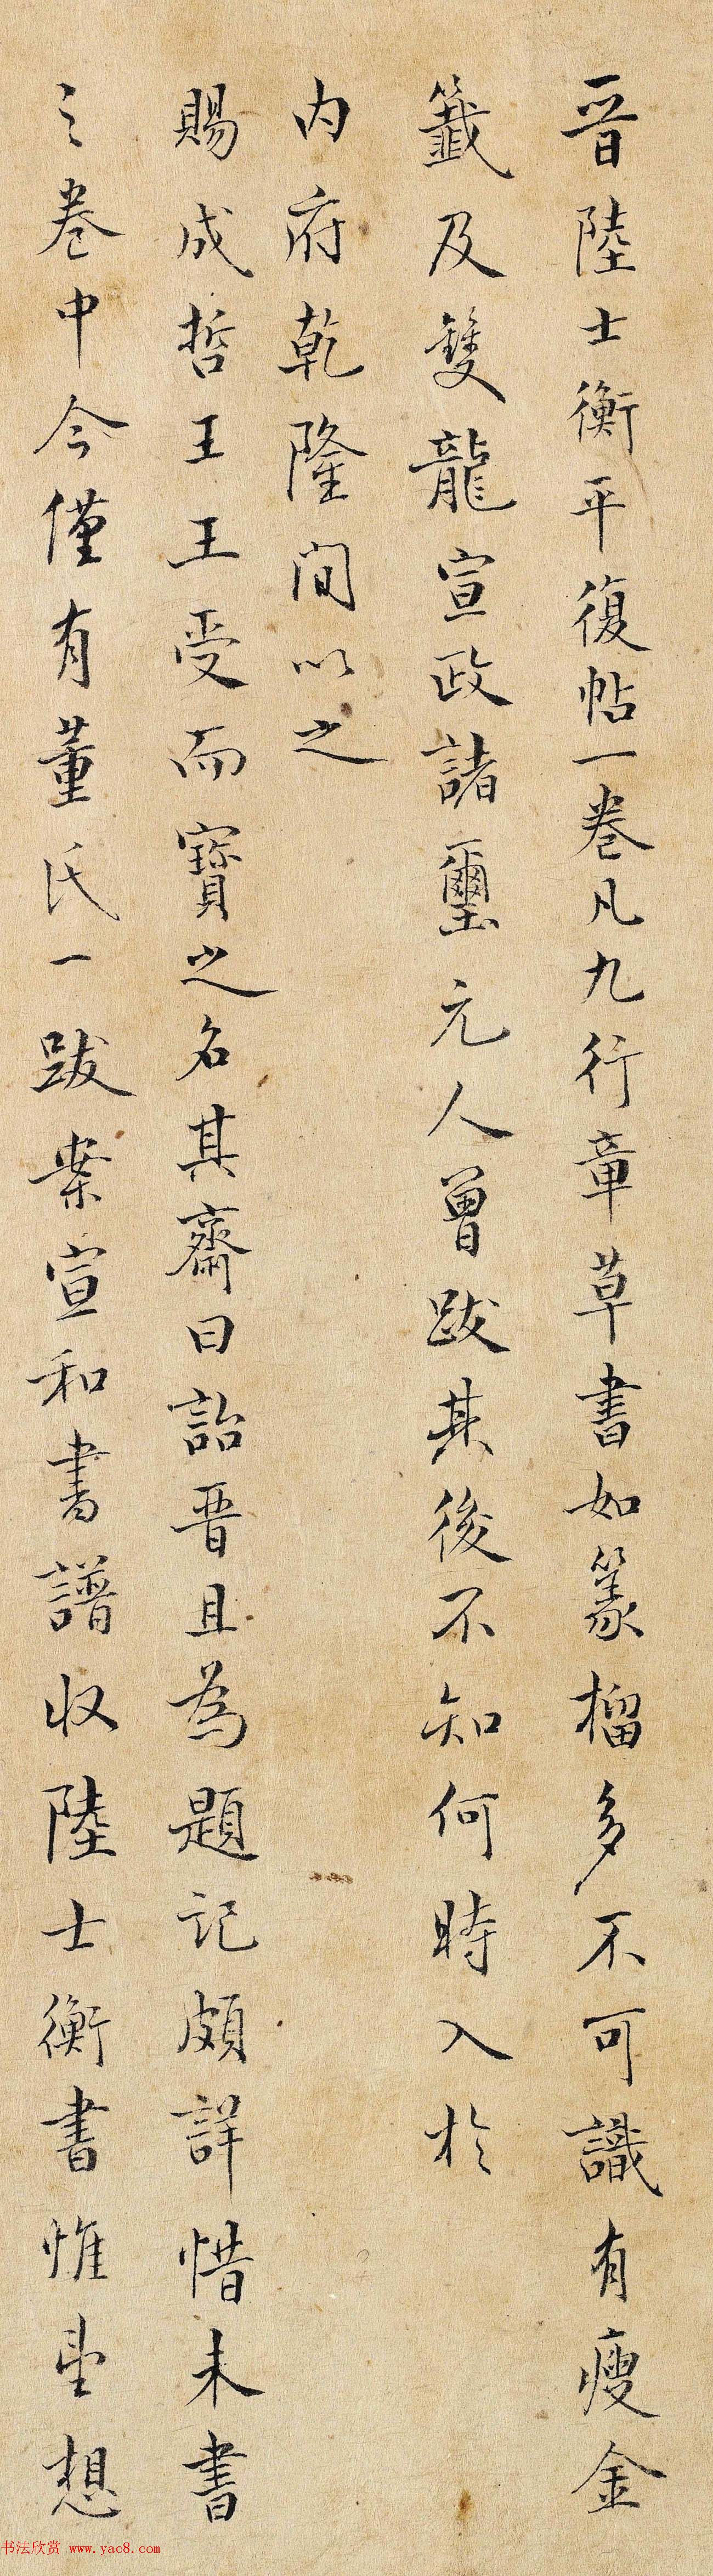 晉陸士衡平復帖一卷凡九行章草書如篆榴多不可識有瘦金
籤及雙龍宣政諸璽元人曾跋其後不知何時入於
内府乾隆間以之
賜成哲王王受而寶之名其齋曰詒晉且為題記頗詳惜未書
之卷中今僅有董氏一跋案宣和書譜收陸士衡書惟望想
书法欣赏 www.yac8.com